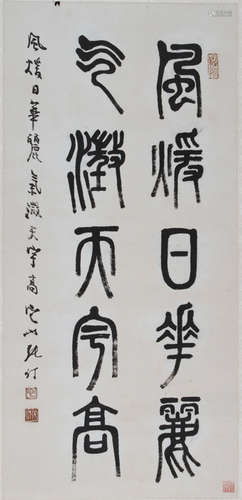 風煖日華麗
氣澂天宇高
風煖日華麗氣澂天宇高